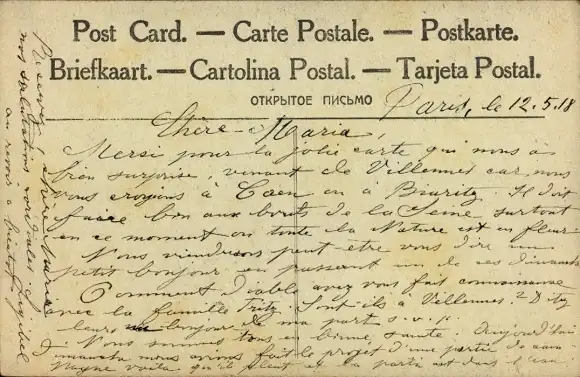 Post Card. — Carte Postale. — Postkarte.
Briefkaart. — Cartolina Postal. — Tarjeta Postal.
ОТКРЫТОЕ ПИСЬМО
Paris, le 12.5.18
Chère Maria,
Mersi pour la jolie carte qui nous à
bien surprise, venant de Villennes car nous
vous croyions à Caen ou à Biaritz. Il doit
faire bon aux bords de la Seine surtout
en ce moment ou toute la Nature est en fleur.
Nous viendrons peut-être vous dire un
petit bonjour en passant un de ces dimanches
Comment diable avez vous fait connaissance
avec la famille Fritz. Sont-ils à Villennes? Dites
leurs bonjour de ma part s.v.p.
Nous sommes tous en bonne santé. Aujourd'hui
dimanche nous avions fait le projet d'une partie de cam-
pagne voila qu'il pleut et la partie est dans l'eau.
Recevez chère Maria
nos salutations cordiales
au revoir a bientot